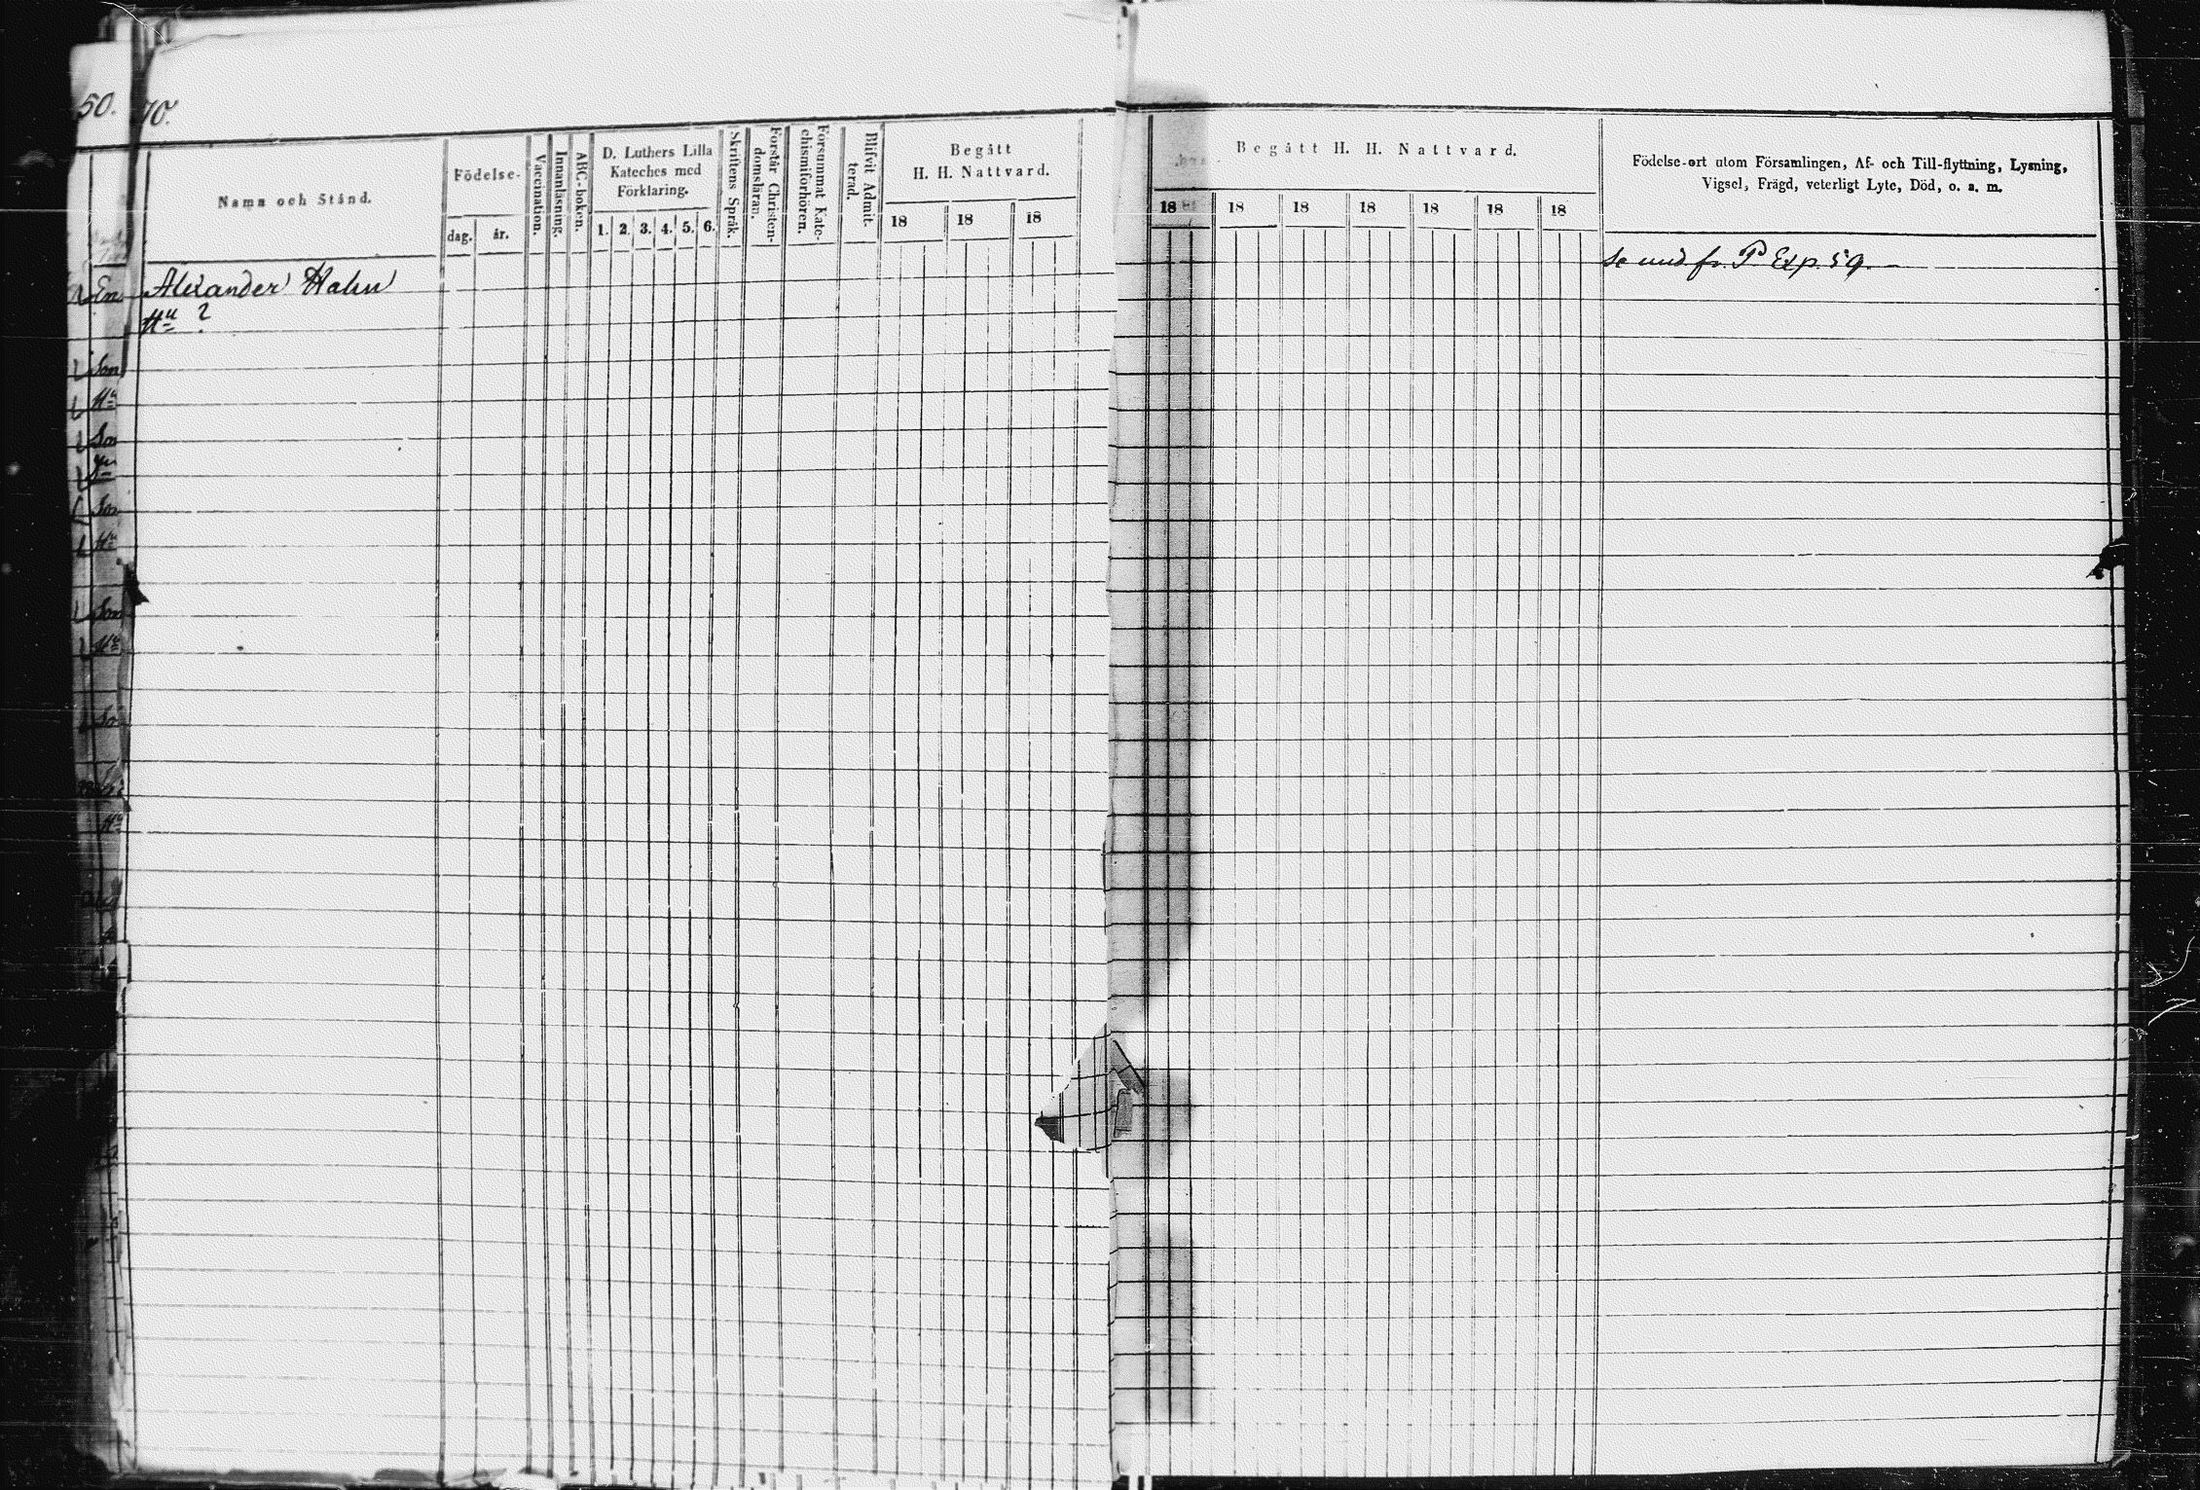 50. 70.
Namn och Stånd.
Födelse-
dag.
år.
Vaccination.
Innanläsning.
ABC-boken.
D. Luthers Lilla
Kateches med
Förklaring.
1. 2. 3. 4. 5. 6.
Skriftens Språk.
Förstår Christen-
domsläran.
Försummat Kate-
chismiförhören.
Blifvit Admit-
terad.
Begått
H. H. Nattvard.
18 18 18
Begått H. H. Nattvard.
18 18 18 18 18 18 18
Födelse-ort utom Församlingen, Af- och Till-flyttning, Lysning,
Vigsel, Frägd, veterligt Lyte, Död, o. a. m.
Alexander Hahn
Hu ?
se und fr. P Exp. 59.
Enk
Son
Hu
Son
Son
Hu
Son
Hu
Son
Hu